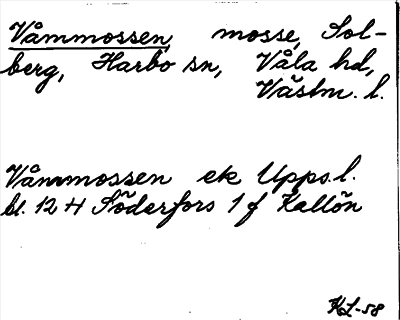 Våmmossen, mosse, Sol-
berg, Harbo sn, Våla hd,
Västm. l.
Våmmossen ek Upps. l.
bl. 12 H Söderfors 1 f Kallön
KL-58